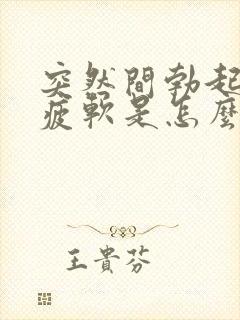 突然間勃起
疲軟是怎麼
王貴芬